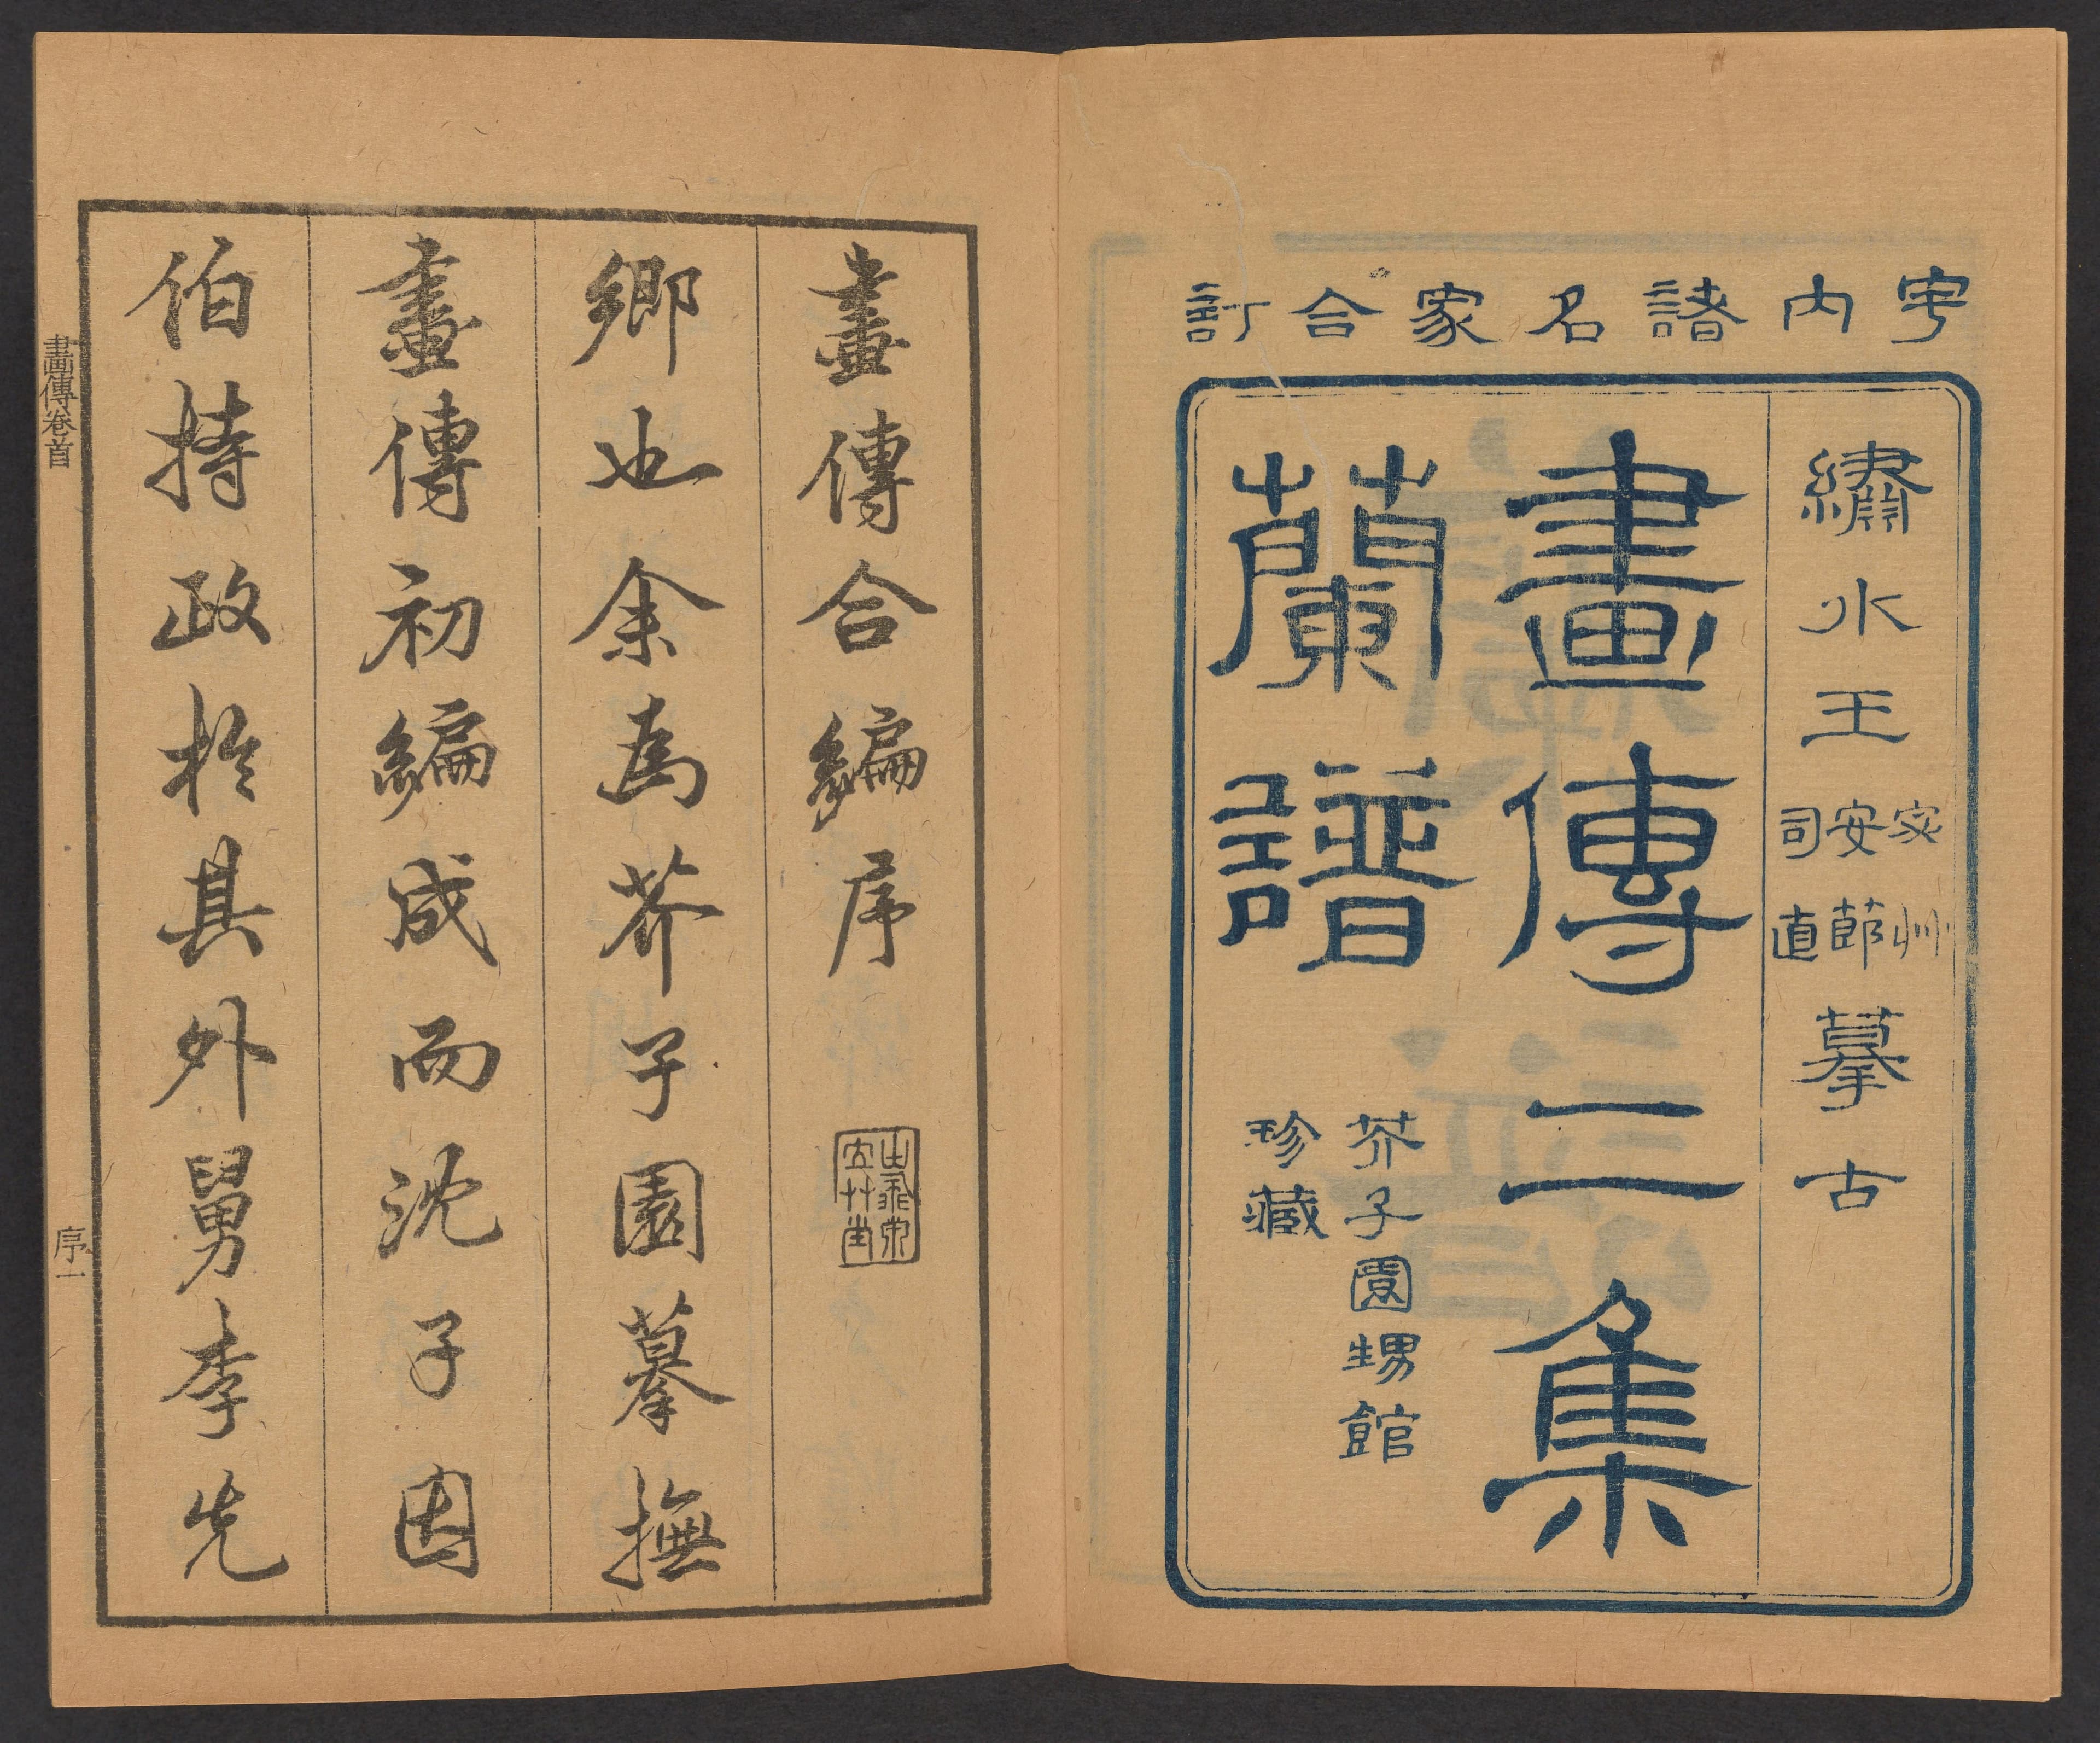 宇內諸名家合訂
繡水王宓艸安節司直摹古
畫傳二集
蘭譜
芥子園甥館
珍藏
畫傳合編序
鄉也余為芥子園摹撫
畫傳初編成而沈子因
伯持政於其外舅李先
畫傳卷首 序一